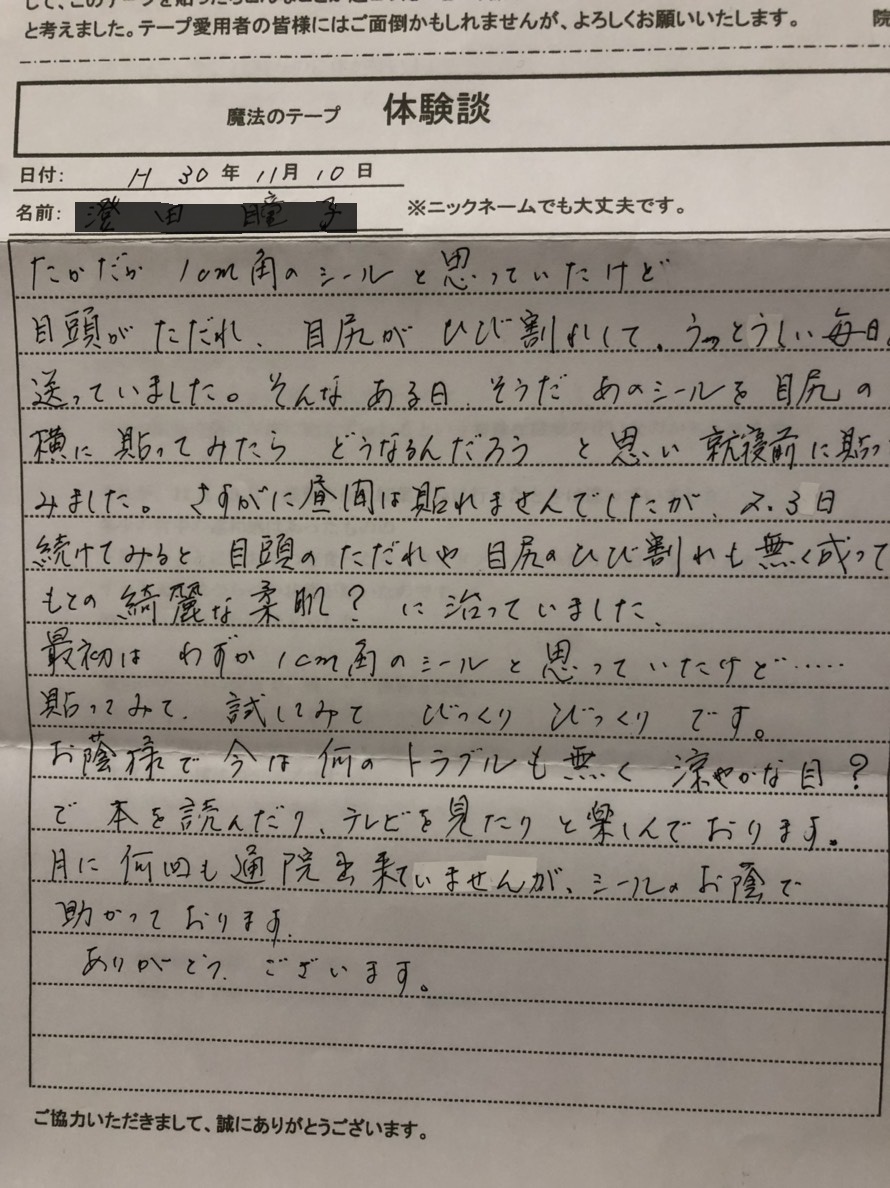 と考えました。テープ愛用者の皆様にはご面倒かもしれませんが、よろしくお願いいたします。 院
魔法のテープ 体験談
日付: H 30 年 11 月 10 日
名前: ※ニックネームでも大丈夫です。
たかだか 1cm角のシールと思っていたけど
目頭がただれ、目尻がひび割れして、うっとうしい毎日
送っていました。そんなある日、そうだ あのシールを目尻の
横に貼ってみたら どうなるんだろう と思い 就寝前に貼っ
みました。さすがに昼間は貼れませんでしたが、2.3日
続けてみると 目頭のただれや目尻のひび割れも無く成って
もとの綺麗な柔肌?に治っていました、
最初は わずか1cm角のシールと思っていたけど……
貼ってみて、試してみて びっくり びっくり です。
お蔭様で今は何のトラブルも無く 涼やかな目?
で 本を読んだり、テレビを見たりと楽しんでおります。
月に何回も通院出来ていませんが、シールのお蔭で
助かっております。
ありがとう、ございます。
ご協力いただきまして、誠にありがとうございます。